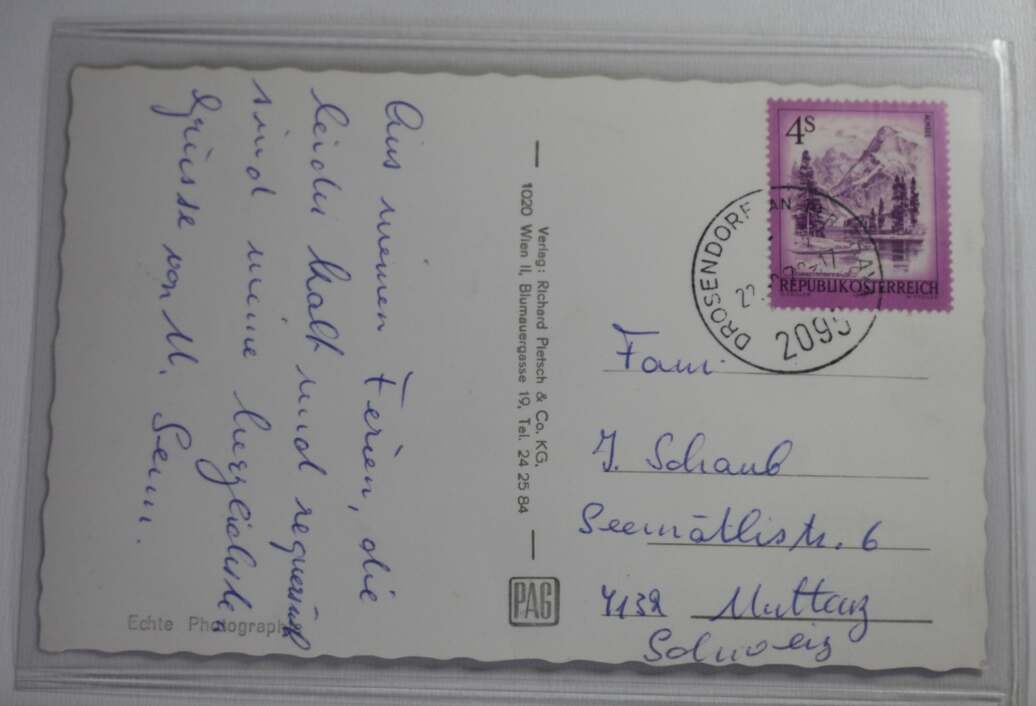 Aus meinen Ferien, die
leider kalt und regnerisch
sind meine herzlichsten
Grüsse von M. Senn.
Echte Photographie
Verlag: Richard Pietsch & Co. KG.
1020 Wien II, Blumauergasse 19, Tel. 24 25 84
PAG
4S
ALMSEE
REPUBLIK ÖSTERREICH
DROSENDORF AN DER THAYA
2095
Fam.
J. Schaub
Seemättlistr. 6
4132 Muttenz
Schweiz